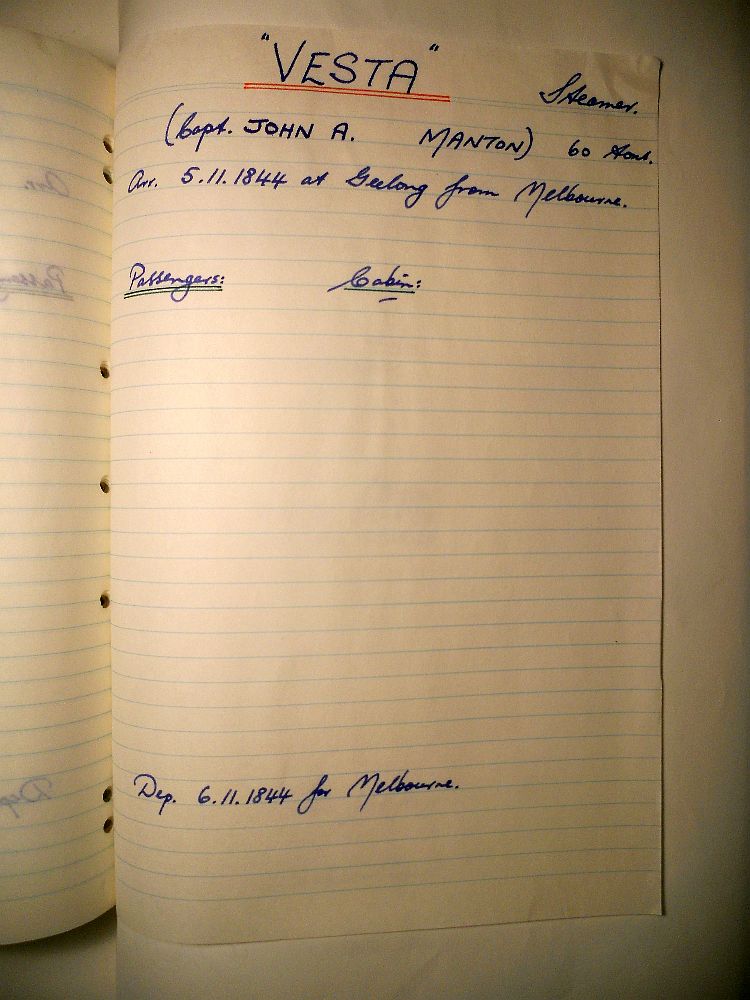 "VESTA"
Steamer.
(Capt. JOHN A. MANTON) 60 tons.
Arr. 5.11.1844 at Geelong from Melbourne.
Passengers: Cabin:
Dep. 6.11.1844 for Melbourne.